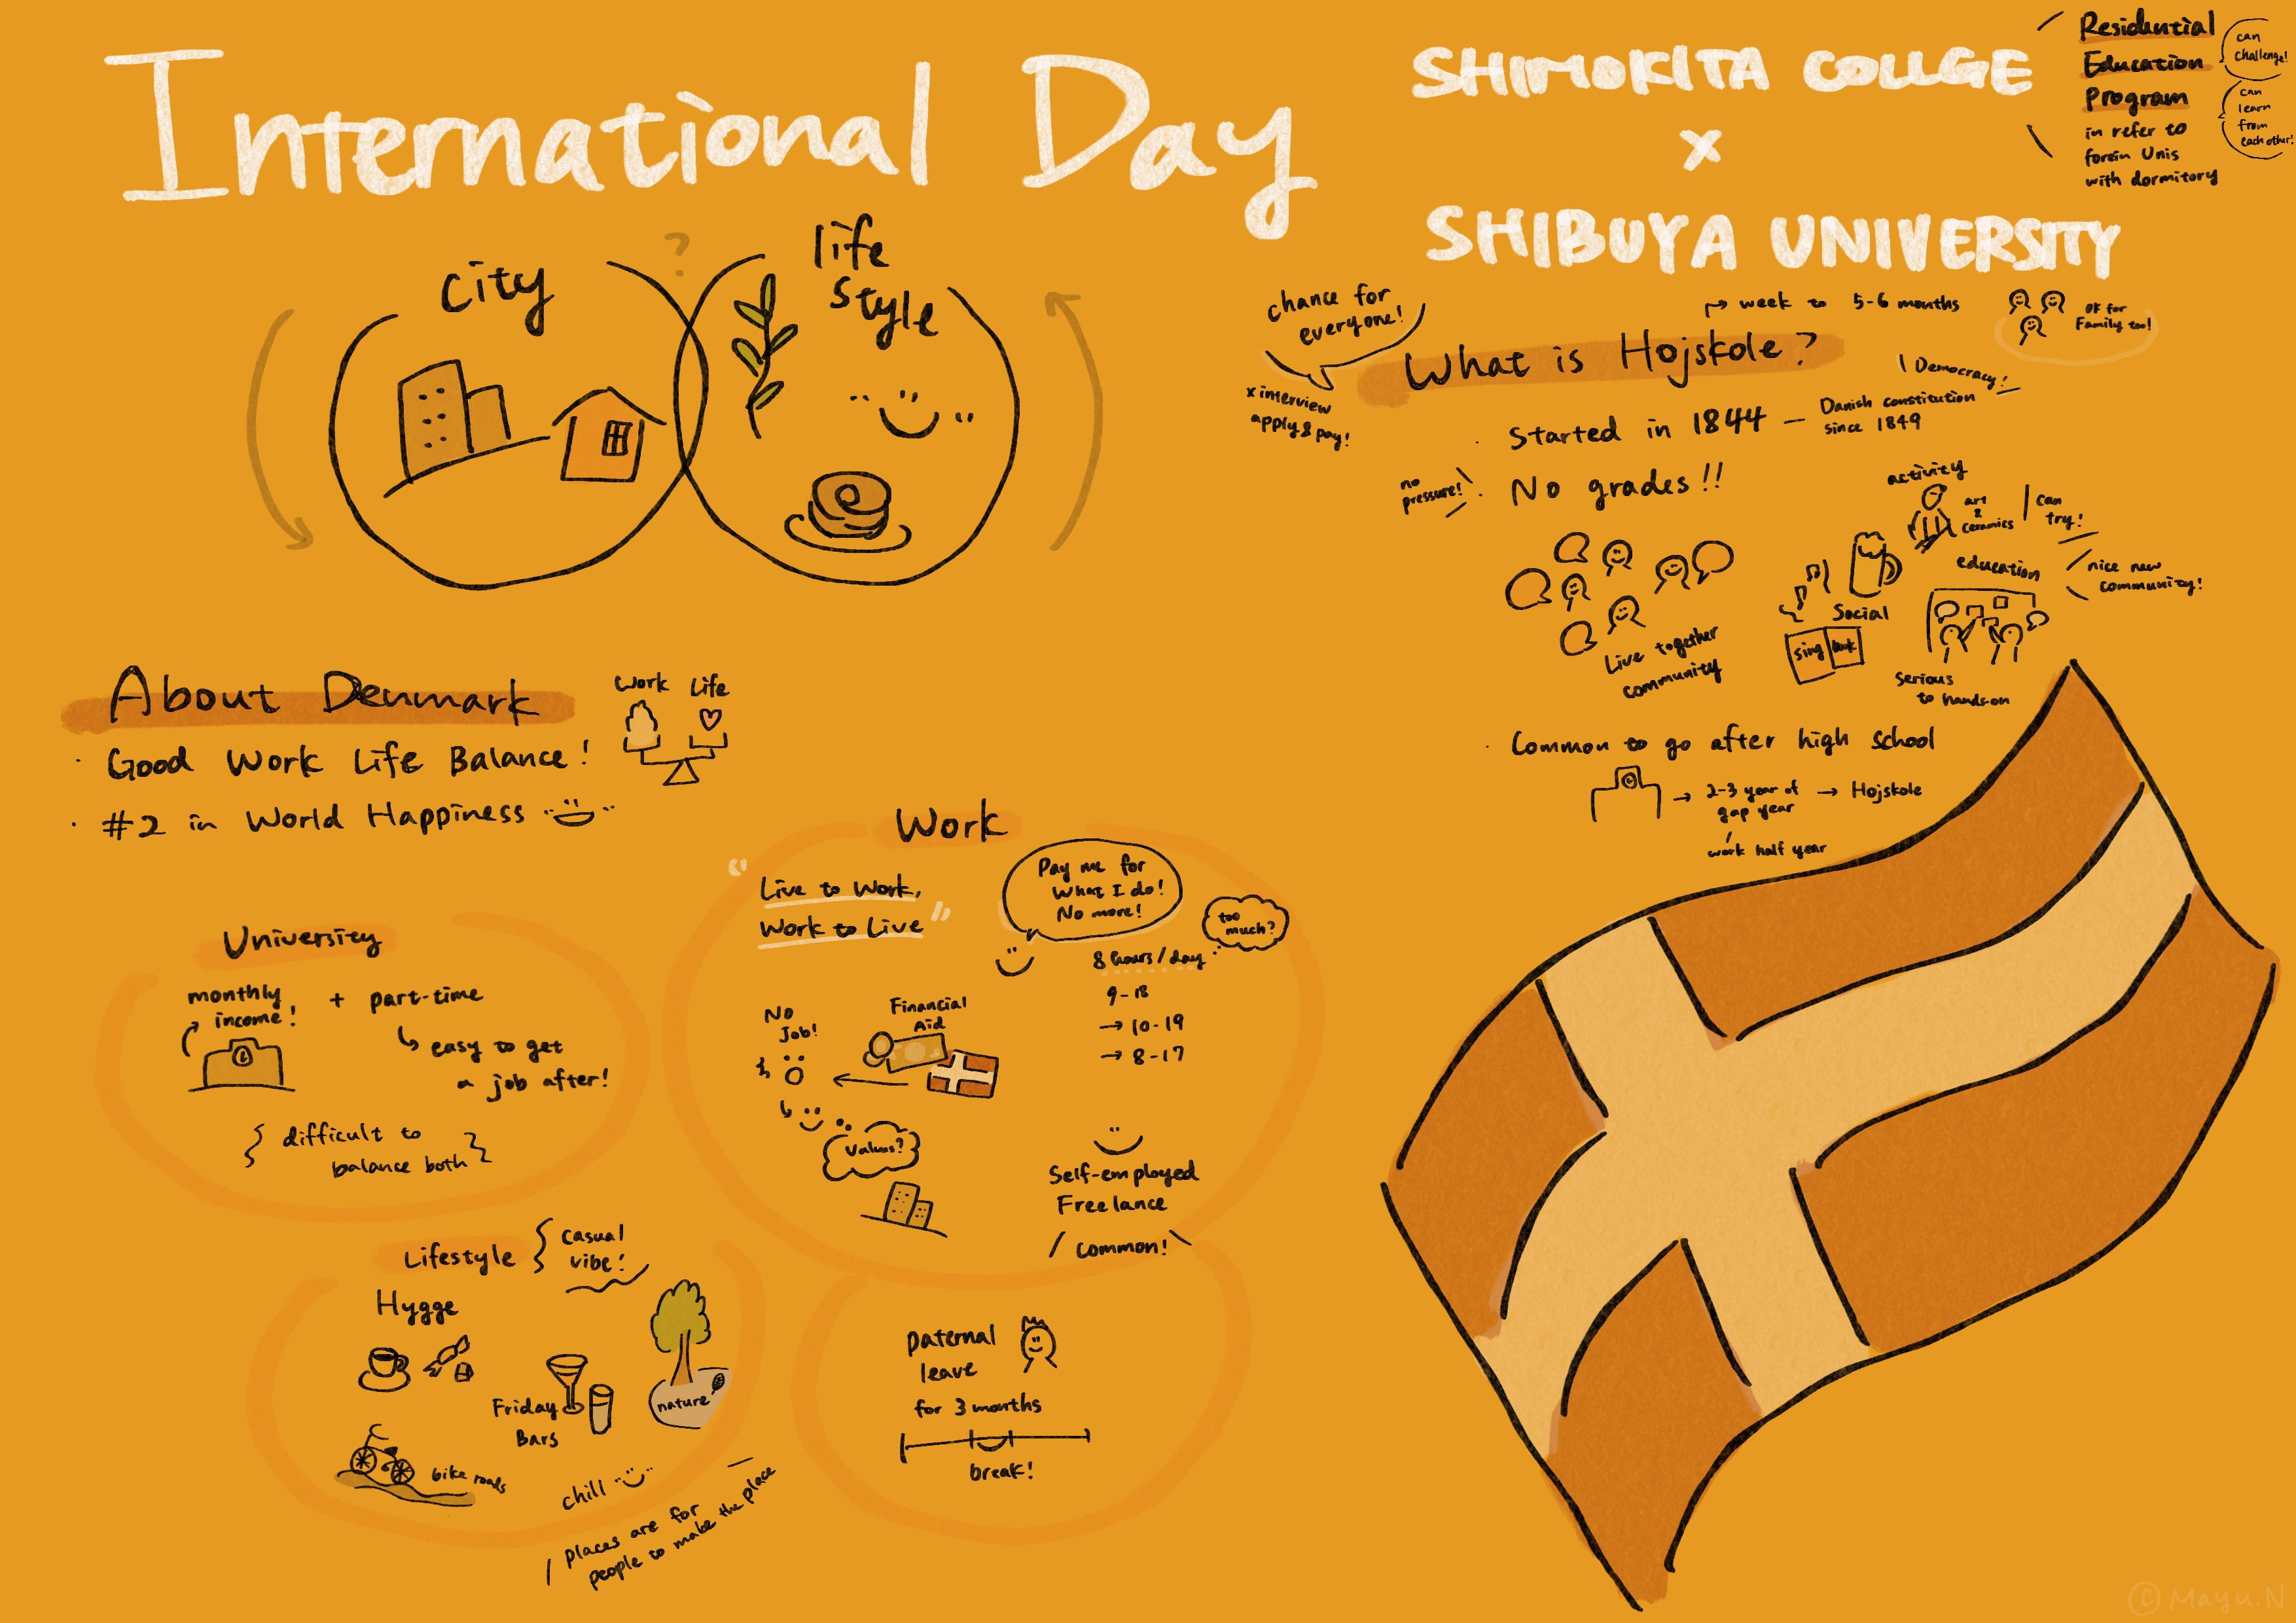 International Day
SHIMOKITA COLLGE
x
SHIBUYA UNIVERSITY
Residential
Education
Program
in refer to
forein Unis
with dormitory
can
challenge!
can
learn
from
each other!
?
city
life
style
About Denmark
Work
Life
· Good Work Life Balance!
· #2 in World Happiness
University
monthly
income!
+ part-time
easy to get
a job after!
difficult to
balance both
Work
"Live to Work,
Work to Live"
Pay me for
What I do!
No more!
too
much?
8 hours/day
9-18
→ 10-19
→ 8-17
No
Job!
Financial
Aid
Values?
Self-employed
Freelance
common!
Lifestyle
casual
vibe!
Hygge
Friday
Bars
nature
bike roads
chill
places are for
people to make the place
paternal
leave
for 3 months
break!
chance for
everyone!
x interview
apply & pay!
week to 5-6 months
OK for
Family too!
What is Hojskole?
Democracy!
· Started in 1844 — Danish constitution
since 1849
no
pressure!
· No grades!!
Live together
community
activity
art
&
ceramics
can
try!
Social
sing
book
education
nice new
community!
Serious
to hands-on
· Common to go after high school
→ 2-3 year of
gap year
→ Hojskole
work half year
© Mayu.N